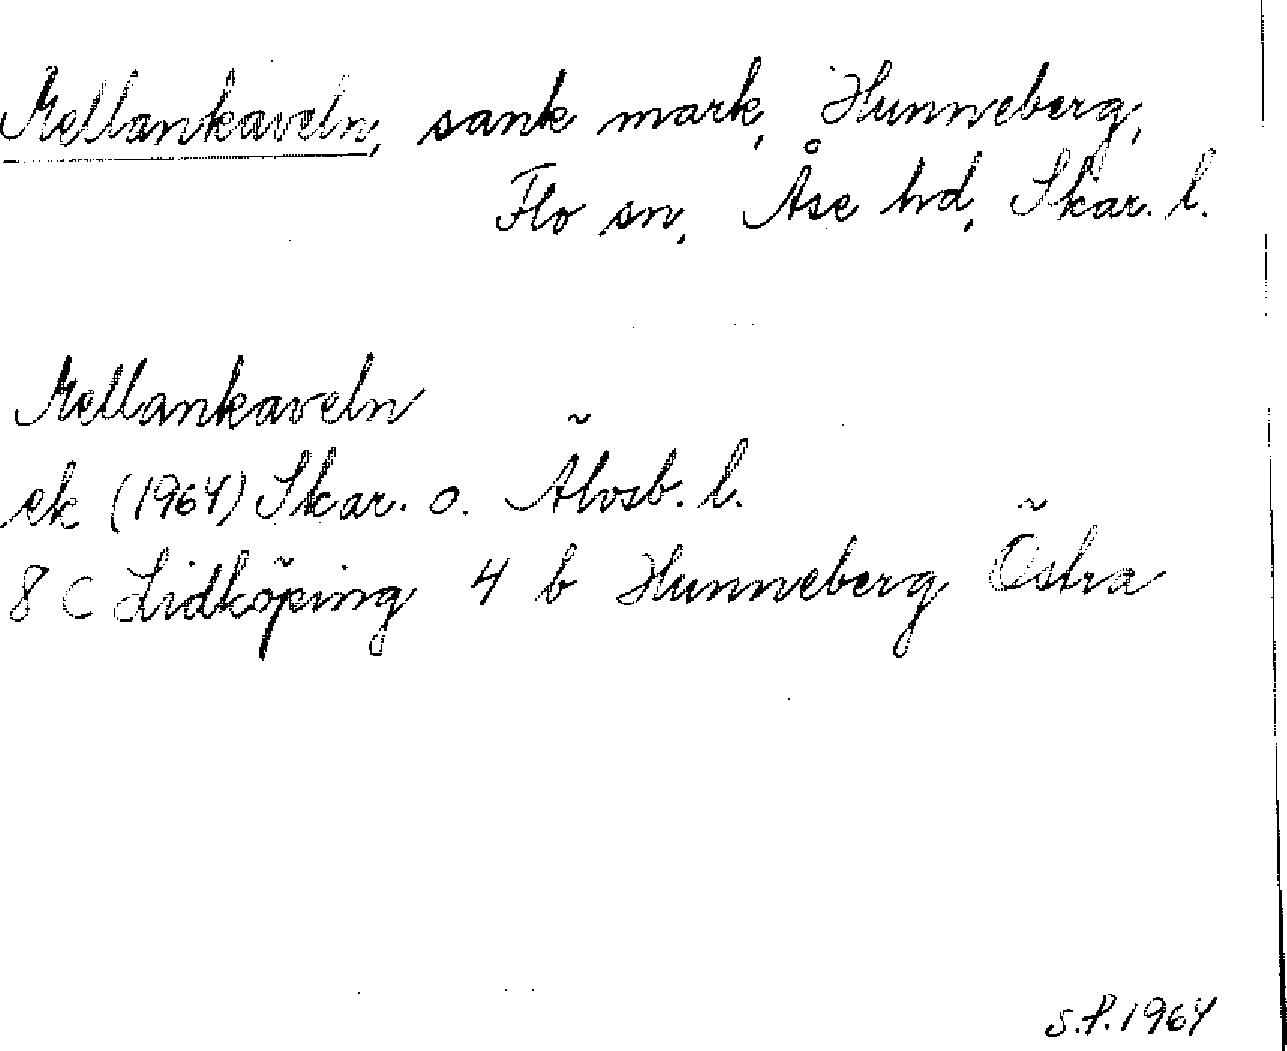 Mellankaveln, sank mark, Hunneberg,
Flo sn, Åse hd, Skar. l.
Mellankaveln
ek (1964) Skar. o. Älvsb. l.
8 C Lidköping 4 b Hunneberg Östra
S.P. 1964